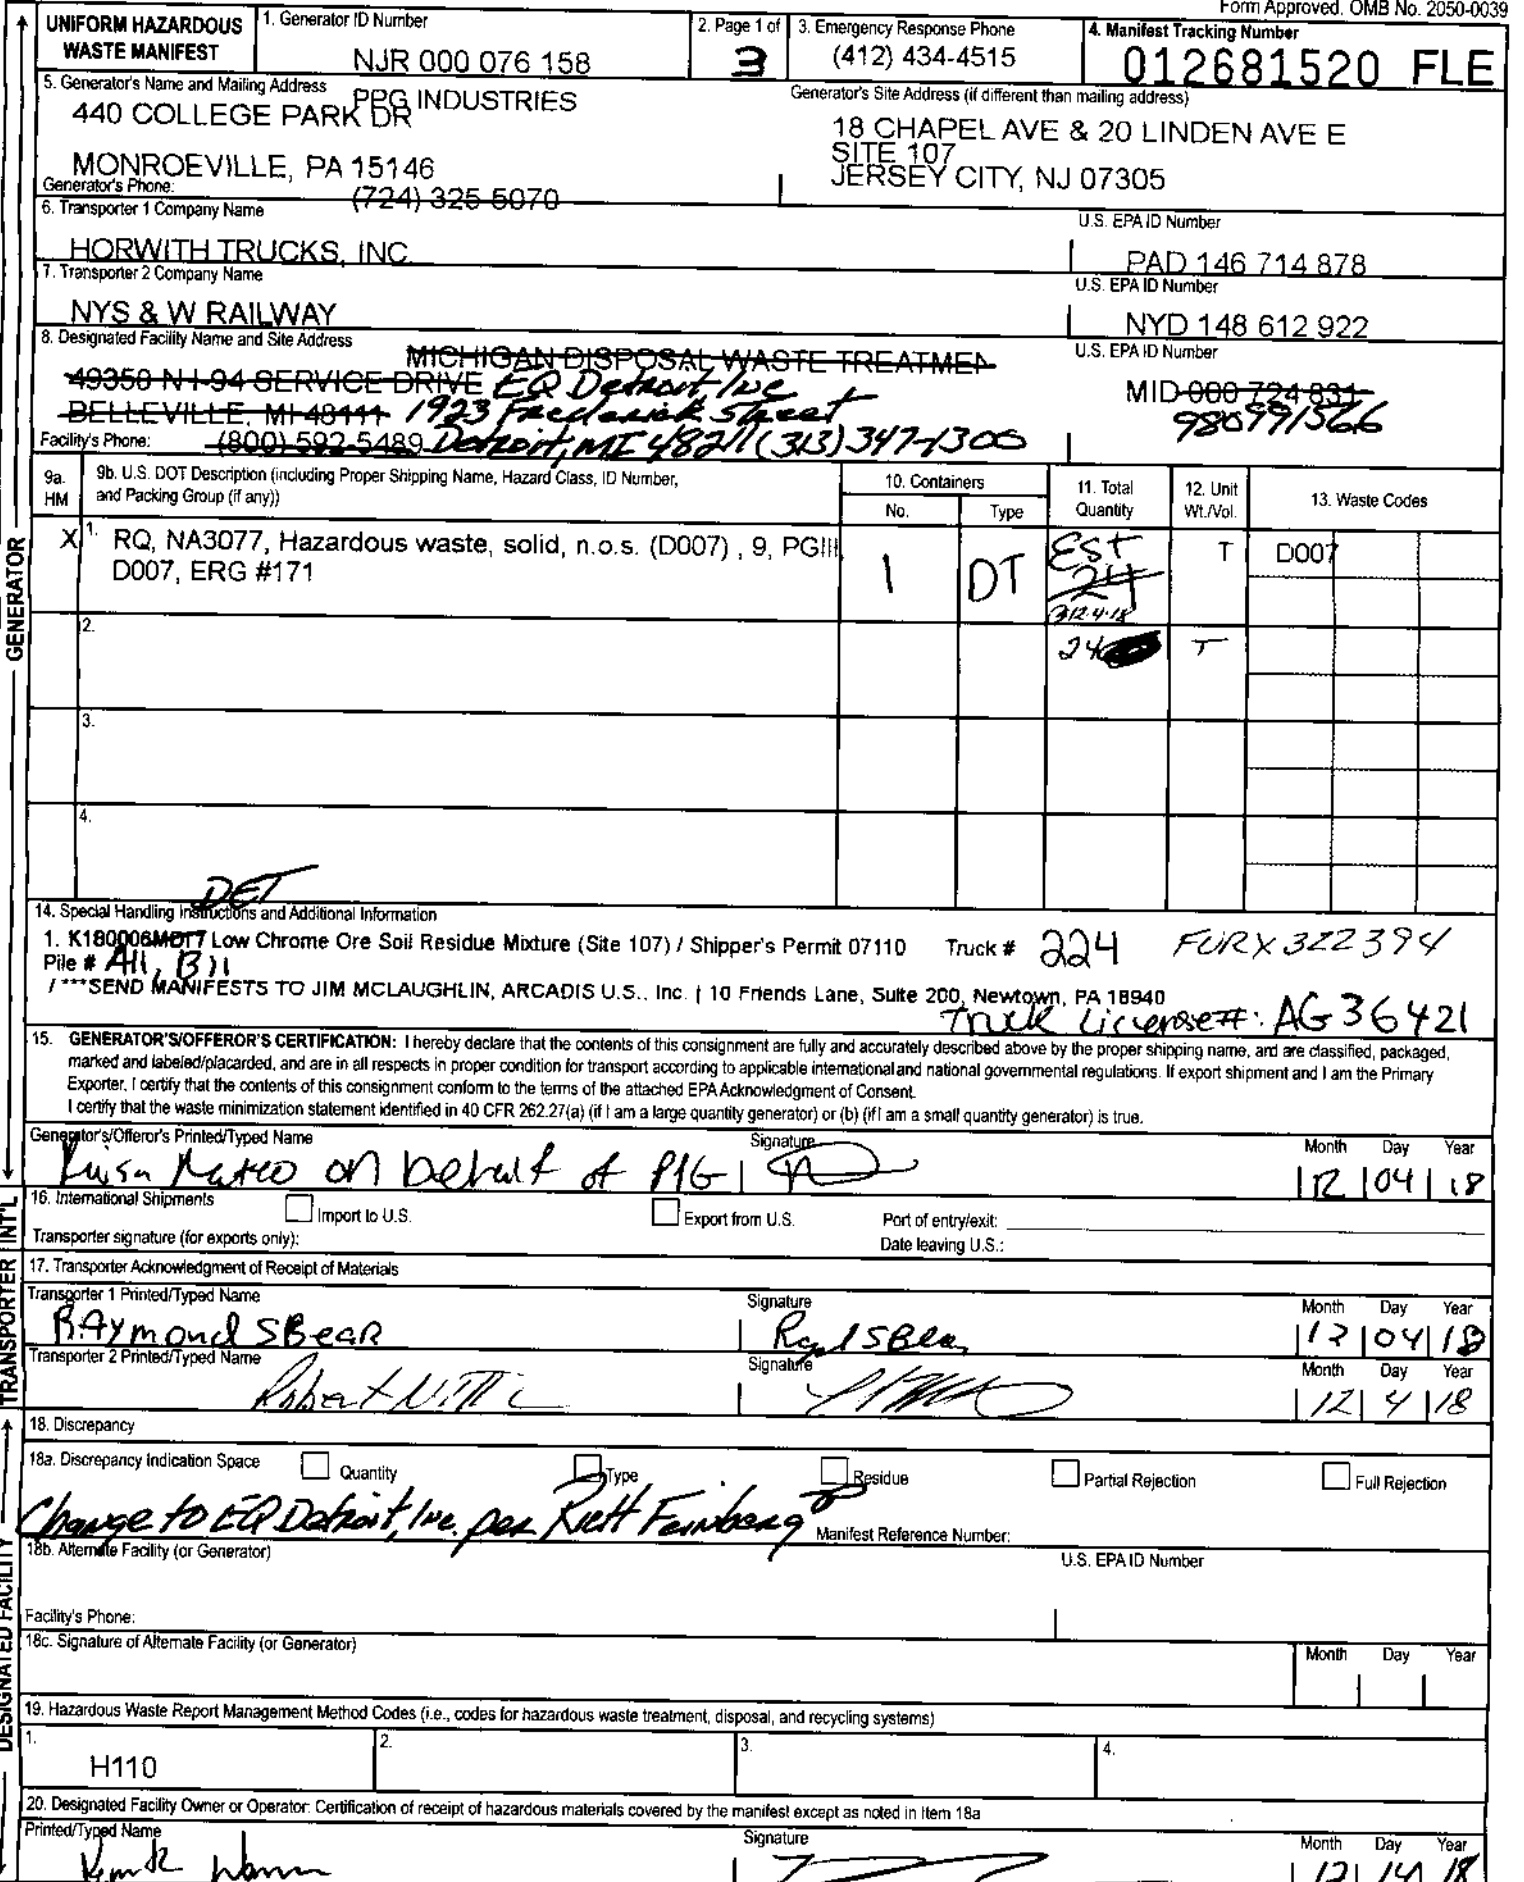 Form Approved. OMB No. 2050-0039
UNIFORM HAZARDOUS WASTE MANIFEST
1. Generator ID Number
NJR 000 076 158
2. Page 1 of
3
3. Emergency Response Phone
(412) 434-4515
4. Manifest Tracking Number
012681520 FLE
5. Generator's Name and Mailing Address
PPG INDUSTRIES
440 COLLEGE PARK DR
MONROEVILLE, PA 15146
Generator's Phone:
(724) 325-5070
Generator's Site Address (if different than mailing address)
18 CHAPEL AVE & 20 LINDEN AVE E
SITE 107
JERSEY CITY, NJ 07305
6. Transporter 1 Company Name
HORWITH TRUCKS, INC.
U.S. EPA ID Number
PAD 146 714 878
7. Transporter 2 Company Name
NYS & W RAILWAY
U.S. EPA ID Number
NYD 148 612 922
8. Designated Facility Name and Site Address
MICHIGAN DISPOSAL WASTE TREATMEN
49350 N I-94 SERVICE DRIVE EQ Detroit Inc
BELLEVILLE, MI 48111 1923 Frederick Street
Facility's Phone: (800) 592-5489 Detroit, MI 48211 (313) 347-1300
U.S. EPA ID Number
MID 000 724 831
980991566
9a. HM
9b. U.S. DOT Description (including Proper Shipping Name, Hazard Class, ID Number, and Packing Group (if any))
10. Containers
No.
Type
11. Total Quantity
12. Unit Wt./Vol.
13. Waste Codes
GENERATOR
X
1. RQ, NA3077, Hazardous waste, solid, n.o.s. (D007) , 9, PGIII
D007, ERG #171
1
DT
Est
24
12-4-18
T
D007
2.
24
T
3.
4.
DET
14. Special Handling Instructions and Additional Information
1. K180006MDT7 Low Chrome Ore Soil Residue Mixture (Site 107) / Shipper's Permit 07110 Truck # 224 FURX322394
Pile # A11, B11
/ ***SEND MANIFESTS TO JIM MCLAUGHLIN, ARCADIS U.S., Inc. | 10 Friends Lane, Suite 200, Newtown, PA 18940
Truck License#: AG36421
15. GENERATOR'S/OFFEROR'S CERTIFICATION: I hereby declare that the contents of this consignment are fully and accurately described above by the proper shipping name, and are classified, packaged,
marked and labeled/placarded, and are in all respects in proper condition for transport according to applicable international and national governmental regulations. If export shipment and I am the Primary
Exporter, I certify that the contents of this consignment conform to the terms of the attached EPA Acknowledgment of Consent.
I certify that the waste minimization statement identified in 40 CFR 262.27(a) (if I am a large quantity generator) or (b) (if I am a small quantity generator) is true.
Generator's/Offeror's Printed/Typed Name
on behalf of PPG
Signature
Month Day Year
12 04 18
INT'L
16. International Shipments
Import to U.S.
Export from U.S.
Port of entry/exit:
Transporter signature (for exports only):
Date leaving U.S.:
TRANSPORTER
17. Transporter Acknowledgment of Receipt of Materials
Transporter 1 Printed/Typed Name
Raymond S Bear
Signature
Month Day Year
12 04 18
Transporter 2 Printed/Typed Name
Robert
Signature
Month Day Year
12 4 18
DESIGNATED FACILITY
18. Discrepancy
18a. Discrepancy Indication Space
Quantity
Type
Residue
Partial Rejection
Full Rejection
Change to EQ Detroit, Inc. per Feinberg
Manifest Reference Number:
18b. Alternate Facility (or Generator)
U.S. EPA ID Number
Facility's Phone:
18c. Signature of Alternate Facility (or Generator)
Month Day Year
19. Hazardous Waste Report Management Method Codes (i.e., codes for hazardous waste treatment, disposal, and recycling systems)
1.
H110
2.
3.
4.
20. Designated Facility Owner or Operator: Certification of receipt of hazardous materials covered by the manifest except as noted in Item 18a
Printed/Typed Name
Signature
Month Day Year
12 14 18